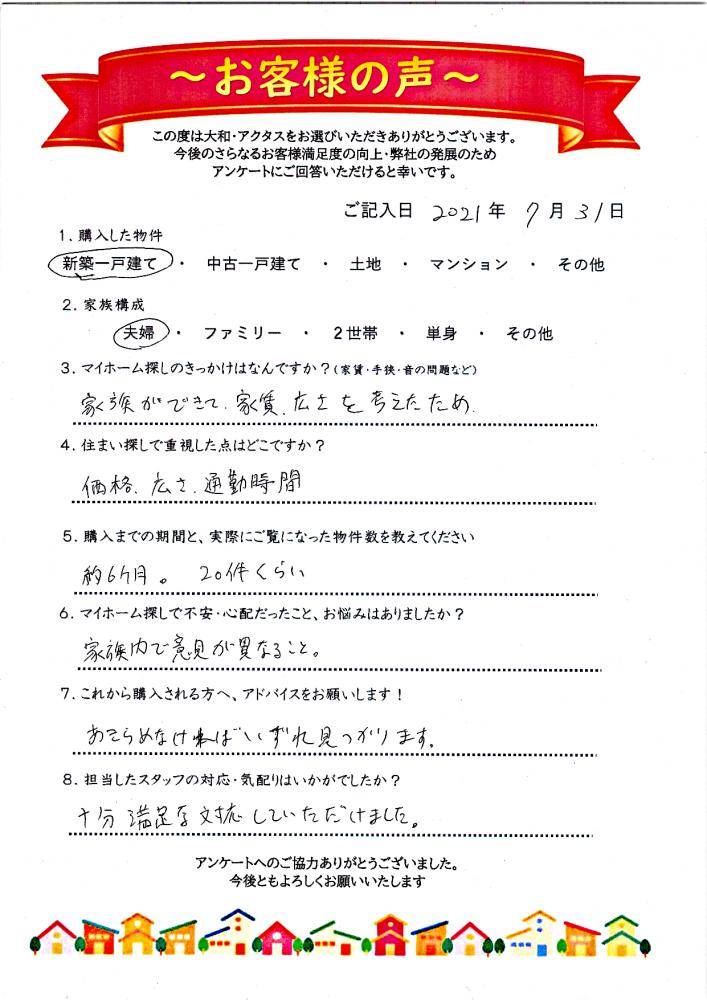 ～お客様の声～
この度は大和・アクタスをお選びいただきありがとうございます。
今後のさらなるお客様満足度の向上・弊社の発展のため
アンケートにご回答いただけると幸いです。
ご記入日 2021年 7月 31日
1. 購入した物件
新築一戸建て ・ 中古一戸建て ・ 土地 ・ マンション ・ その他
2. 家族構成
夫婦 ・ ファミリー ・ 2世帯 ・ 単身 ・ その他
3. マイホーム探しのきっかけはなんですか？(家賃・手狭・音の問題など)
家族ができて、家賃、広さを考えたため.
4. 住まい探しで重視した点はどこですか？
価格、広さ、通勤時間
5. 購入までの期間と、実際にご覧になった物件数を教えてください
約6ケ月。 20件くらい
6. マイホーム探しで不安・心配だったこと、お悩みはありましたか？
家族内で意見が異なること。
7. これから購入される方へ、アドバイスをお願いします！
あきらめなければいずれ見つかります。
8. 担当したスタッフの対応・気配りはいかがでしたか？
十分満足な対応していただけました。
アンケートへのご協力ありがとうございました。
今後ともよろしくお願いいたします